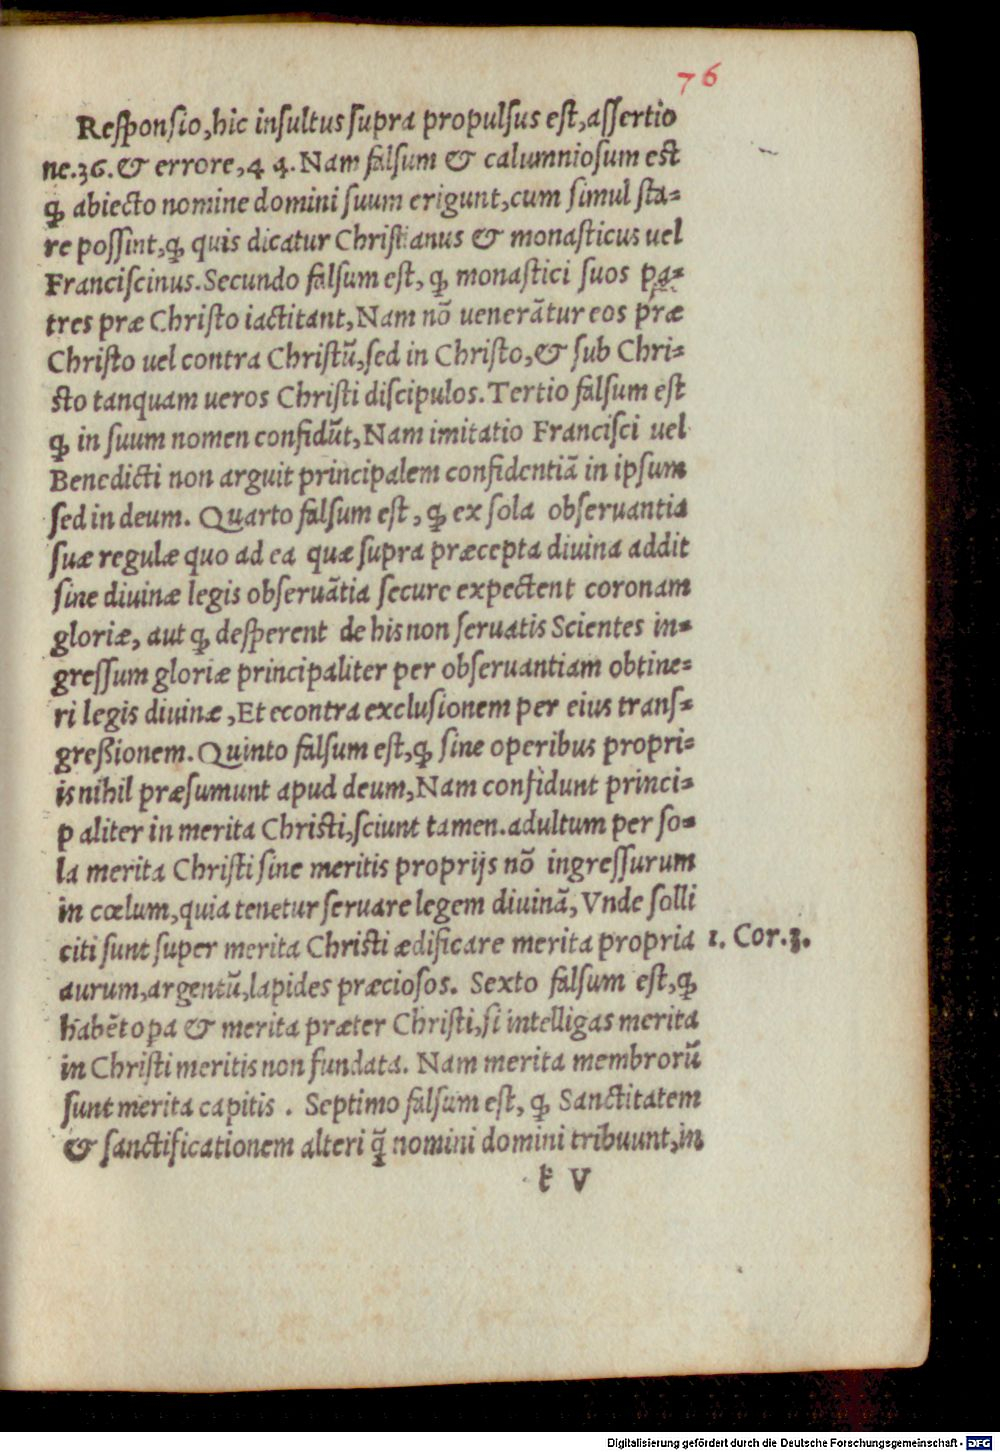 76
Responsio, hic insultus supra propulsus est, assertio
ne. 36. & errore, 44. Nam falsum & calumniosum est
ꝙ abiecto nomine domini suum erigunt, cum simul sta-
re possint, ꝙ quis dicatur Christianus & monasticus uel
Franciscinus. Secundo falsum est, ꝙ monastici suos pa-
tres præ Christo iactitant, Nam nõ uenerãtur eos præ
Christo uel contra Christũ, sed in Christo, & sub Chri-
sto tanquam ueros Christi discipulos. Tertio falsum est
ꝙ in suum nomen confidũt, Nam imitatio Francisci uel
Benedicti non arguit principalem confidentiã in ipsum
sed in deum. Quarto falsum est, ꝙ ex sola obseruantia
suæ regulæ quo ad ea quæ supra præcepta diuina addit
sine diuinæ legis obseruãtia secure expectent coronam
gloriæ, aut ꝙ desperent de his non seruatis Scientes in-
gressum gloriæ principaliter per obseruantiam obtine-
ri legis diuinæ, Et econtra exclusionem per eius trans-
greßionem. Quinto falsum est, ꝙ sine operibus propri-
is nihil præsumunt apud deum, Nam confidunt princi-
p aliter in merita Christi, sciunt tamen. adultum per so-
la merita Christi sine meritis proprijs nõ ingressurum
in cœlum, quia tenetur seruare legem diuinã, Vnde solli
citi sunt super merita Christi ædificare merita propria 1. Cor. 3.
aurum, argentũ, lapides præciosos. Sexto falsum est, ꝙ
habẽt opa & merita præter Christi, si intelligas merita
in Christi meritis non fundata. Nam merita membrorũ
sunt merita capitis. Septimo falsum est, ꝙ Sanctitatem
& sanctificationem alteri q̃ nomini domini tribuunt, in
k V
Digitalisierung gefördert durch die Deutsche Forschungsgemeinschaft - DFG